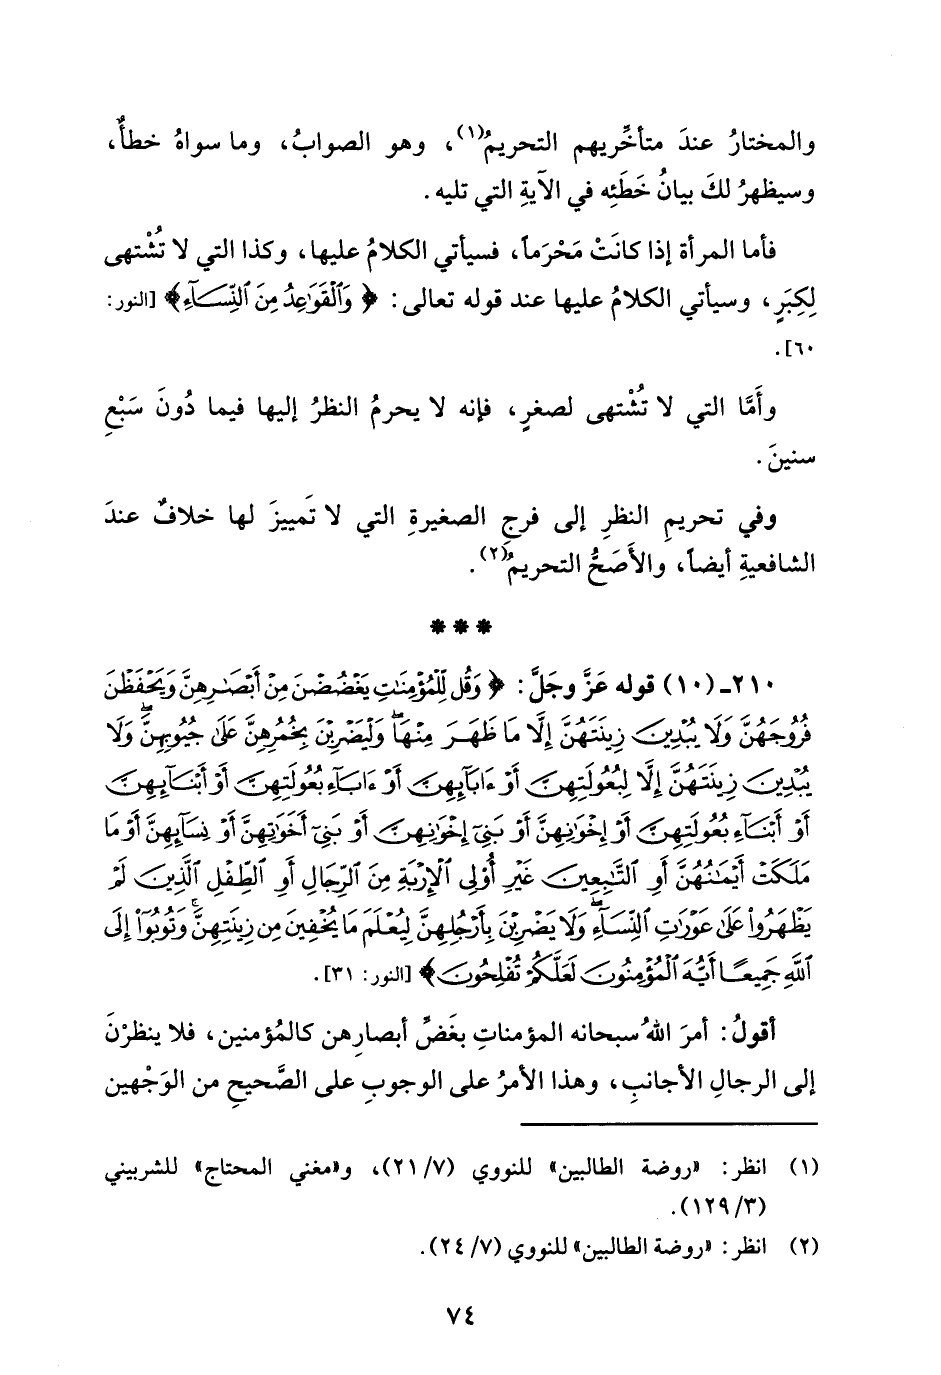 والمختارُ عندَ متأخِّريهم التحريمُ(١)، وهو الصوابُ، وما سواهُ خطأٌ،
وسيظهرُ لكَ بيانُ خَطَئِه في الآيةِ التي تليه.
فأما المرأة إذا كانَتْ مَحْرَماً، فسيأتي الكلامُ عليها، وكذا التي لا تُشْتهى
لِكِبَرٍ، وسيأتي الكلامُ عليها عند قوله تعالى: ﴿وَٱلْقَوَٰعِدُ مِنَ ٱلنِّسَآءِ﴾ [النور:
٦٠].
وأَمَّا التي لا تُشْتهى لصغرٍ، فإنه لا يحرمُ النظرُ إليها فيما دُونَ سَبْعِ
سنينَ.
وفي تحريمِ النظرِ إلى فرجِ الصغيرةِ التي لا تَمييزَ لها خلافٌ عندَ
الشافعيةِ أيضاً، والأَصَحُّ التحريمُ(٢).
* * *
٢١٠ـ (١٠) قوله عَزَّ وجَلَّ: ﴿وَقُل لِّلْمُؤْمِنَٰتِ يَغْضُضْنَ مِنْ أَبْصَٰرِهِنَّ وَيَحْفَظْنَ
فُرُوجَهُنَّ وَلَا يُبْدِينَ زِينَتَهُنَّ إِلَّا مَا ظَهَرَ مِنْهَا ۖ وَلْيَضْرِبْنَ بِخُمُرِهِنَّ عَلَىٰ جُيُوبِهِنَّ ۖ وَلَا
يُبْدِينَ زِينَتَهُنَّ إِلَّا لِبُعُولَتِهِنَّ أَوْ ءَابَآئِهِنَّ أَوْ ءَابَآءِ بُعُولَتِهِنَّ أَوْ أَبْنَآئِهِنَّ
أَوْ أَبْنَآءِ بُعُولَتِهِنَّ أَوْ إِخْوَٰنِهِنَّ أَوْ بَنِىٓ إِخْوَٰنِهِنَّ أَوْ بَنِىٓ أَخَوَٰتِهِنَّ أَوْ نِسَآئِهِنَّ أَوْ مَا
مَلَكَتْ أَيْمَٰنُهُنَّ أَوِ ٱلتَّٰبِعِينَ غَيْرِ أُو۟لِى ٱلْإِرْبَةِ مِنَ ٱلرِّجَالِ أَوِ ٱلطِّفْلِ ٱلَّذِينَ لَمْ
يَظْهَرُوا۟ عَلَىٰ عَوْرَٰتِ ٱلنِّسَآءِ ۖ وَلَا يَضْرِبْنَ بِأَرْجُلِهِنَّ لِيُعْلَمَ مَا يُخْفِينَ مِن زِينَتِهِنَّ ۚ وَتُوبُوٓا۟ إِلَى
ٱللَّهِ جَمِيعًا أَيُّهَ ٱلْمُؤْمِنُونَ لَعَلَّكُمْ تُفْلِحُونَ﴾ [النور: ٣١].
أقولُ: أمرَ اللهُ سبحانه المؤمناتِ بغَضِّ أبصارِهن كالمُؤمنين، فلا ينظرْنَ
إلى الرجالِ الأجانبِ، وهذا الأمرُ على الوجوبِ على الصَّحيحِ من الوَجْهين
(١) انظر: «روضة الطالبين» للنووي (٧/ ٢١)، و«مغني المحتاج» للشربيني
(٣/ ١٢٩).
(٢) انظر: «روضة الطالبين» للنووي (٧/ ٢٤).
٧٤